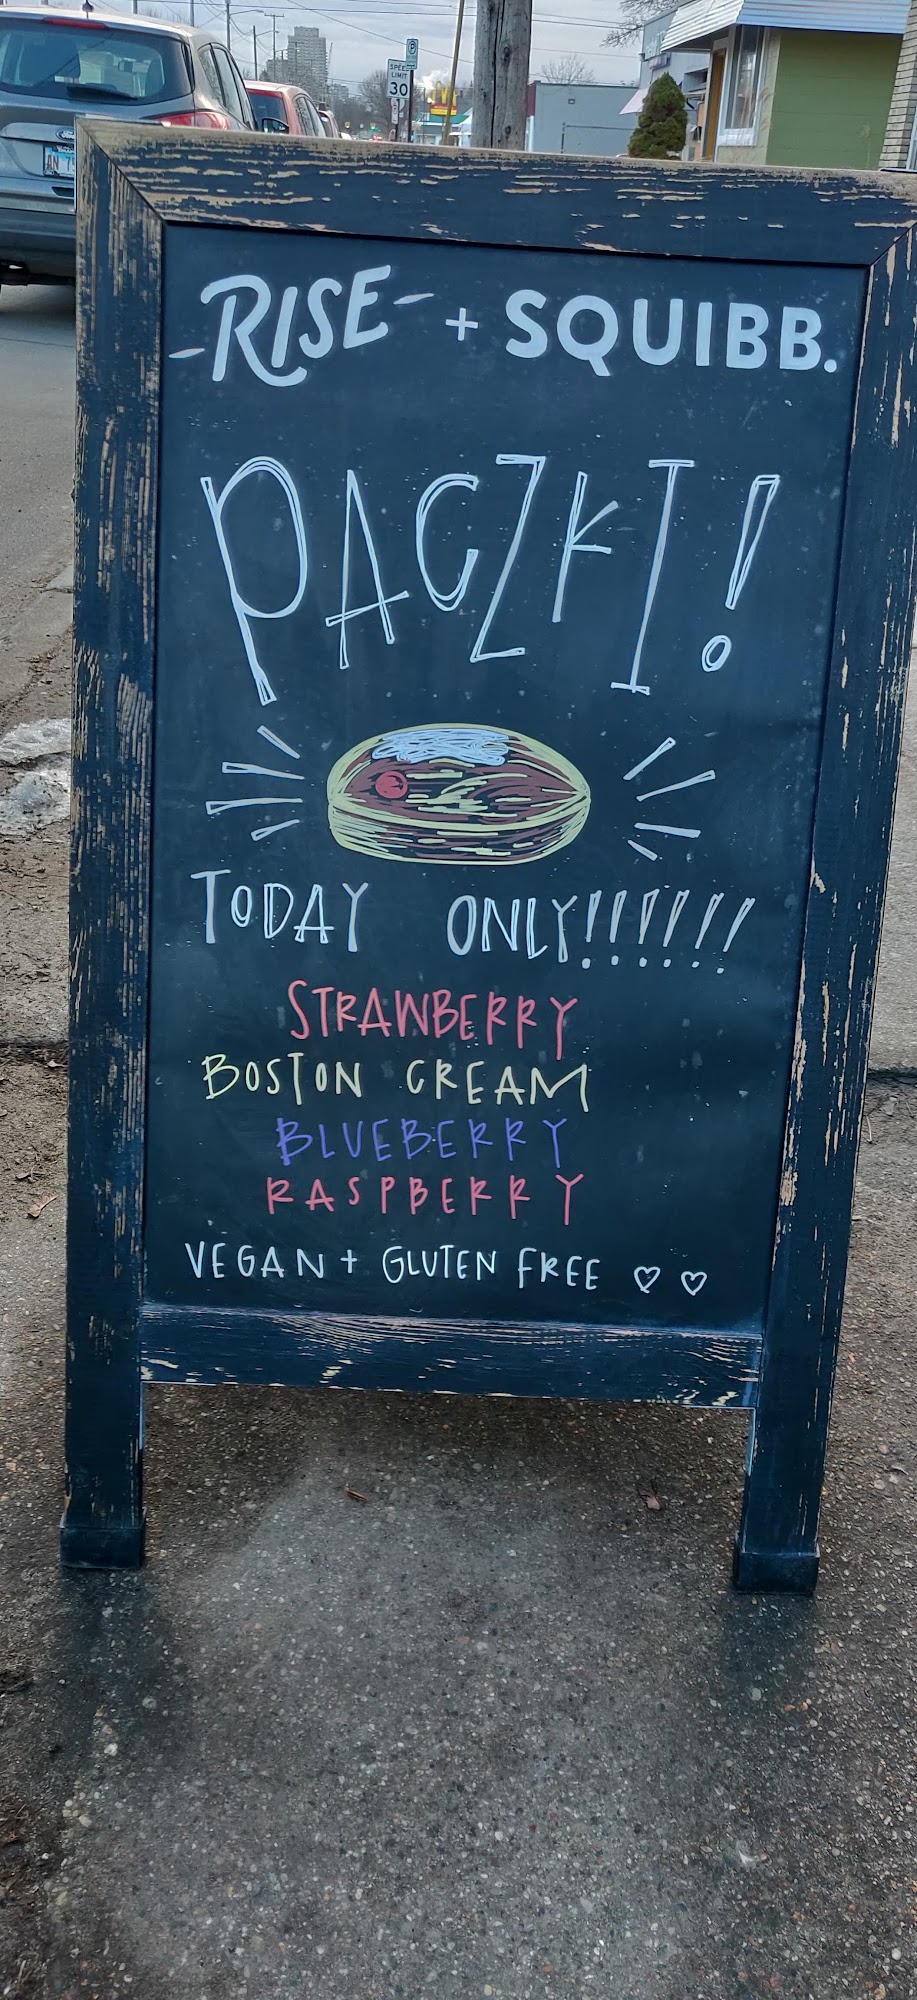 SPEED
LIMIT
30
-RISE- + SQUIBB.
PACZKI!
TODAY ONLY!!!!!!!
STRAWBERRY
BOSTON CREAM
BLUEBERRY
RASPBERRY
VEGAN + GLUTEN FREE ♡ ♡